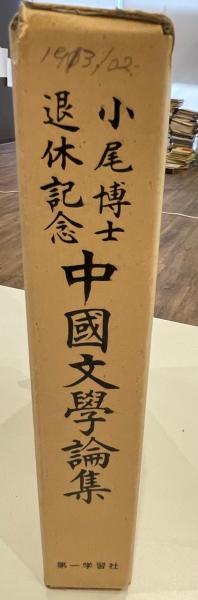 小尾博士
退休記念
中國文學論集
第一学習社